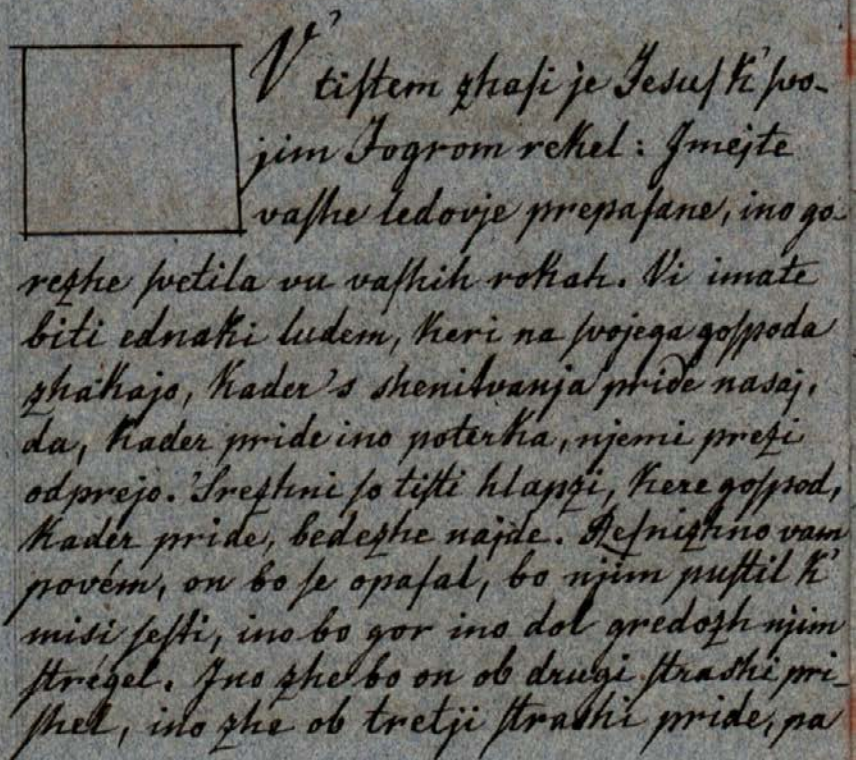 V' tiſtem zhaſi je Jesuſ k' ſvo-
jim Jogrom rekel: Jmejte
vaſhe ledovje prepaſane, ino go-
rezhe ſvetila vu vaſhih rokah. Vi imate
biti ednaki ludem, keri na ſvojega goſpoda
zhakajo, kader 's shenitvanja pride nasaj,
da, kader pride ino poterka, njemi prezi
odprejo. Srezhni ſo tiſti hlapzi, kere goſpod,
kader pride, bedezhe najde. Reſnizhno vam
povém, on bo ſe opaſal, bo njim puſtil k'
misi ſeſti, ino bo gor ino dol gredozh njim
ſtrégel. Jno zhe bo on ob drugi ſtrashi pri-
ſhel, ino zhe ob tretji ſtrashi pride, pa